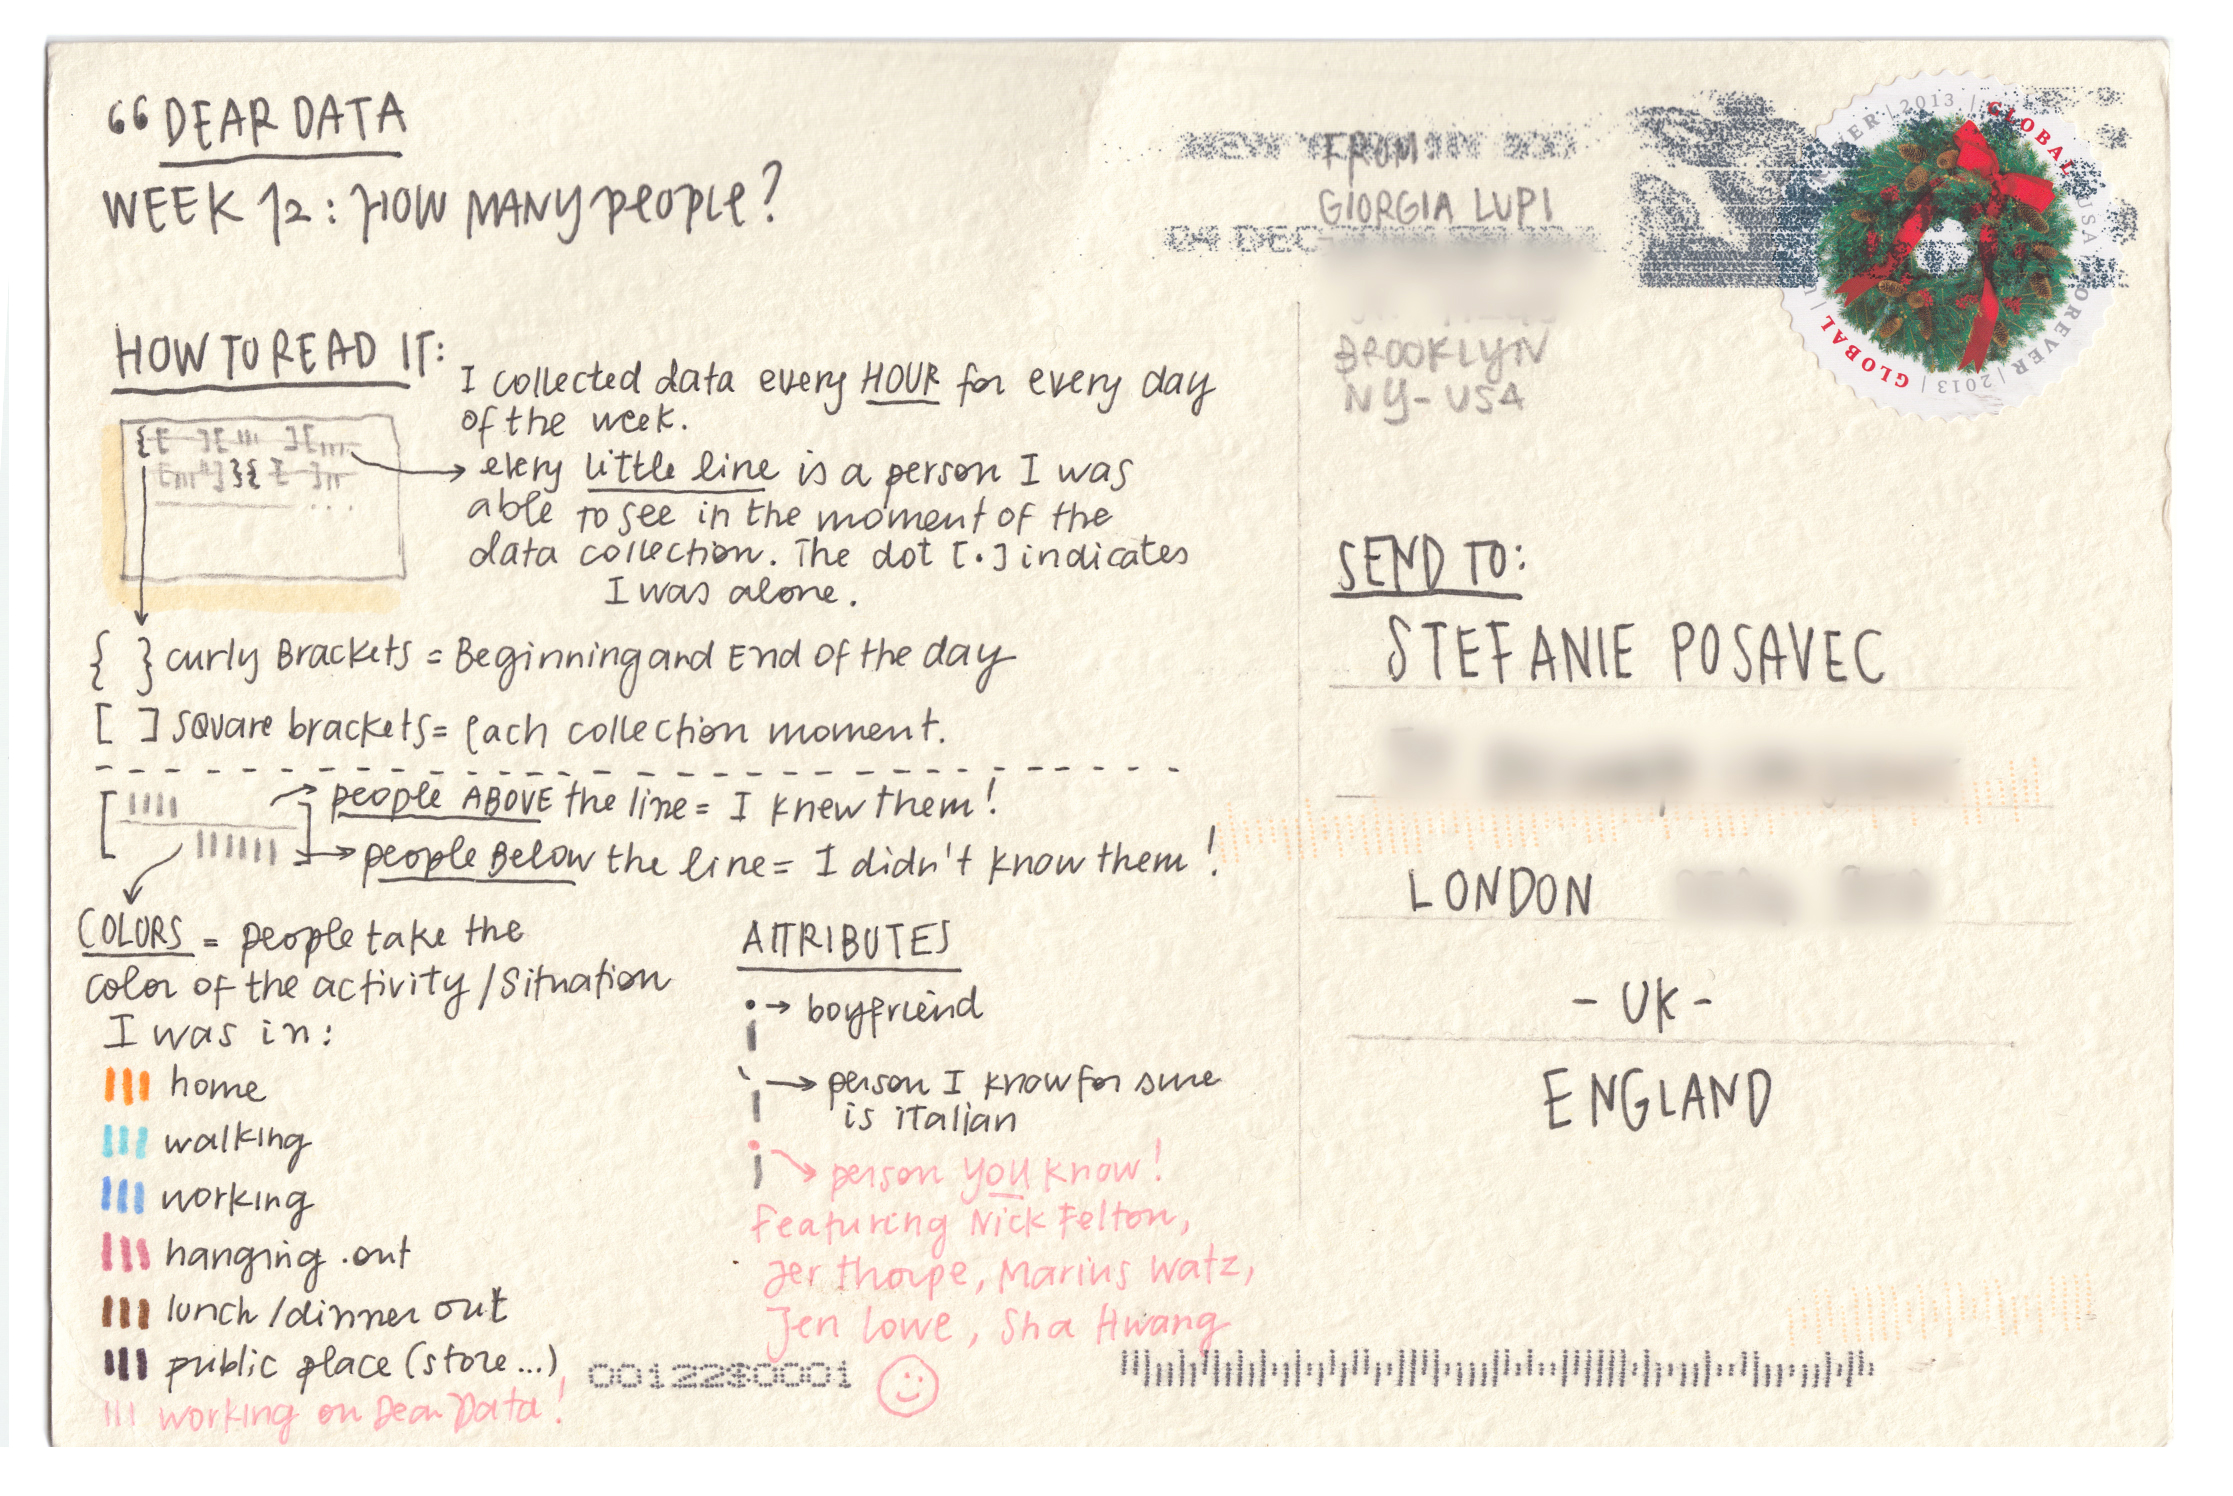 “DEAR DATA
WEEK 12: HOW MANY people?
HOW TO READ IT:
I collected data every HOUR for every day
of the week.
every little line is a person I was
able to see in the moment of the
data collection. The dot [.] indicates
I was alone.
{ } curly Brackets = Beginning and End of the day
[ ] square brackets = Each collection moment.
people ABOVE the line = I knew them!
people Below the line = I didn't know them!
COLORS = people take the
color of the activity / situation
I was in:
home
walking
working
hanging out
lunch / dinner out
public place (store...)
working on Dear Data!
ATTRIBUTES
boyfriend
person I know for sure
is italian
person you know!
Featuring Nick Felton,
Jer thorpe, Marius Watz,
Jen Lowe, Sha Hwang
0012280001
NEW YORK NY 100
04 DEC
FROM:
GIORGIA LUPI
BROOKLYN
NY - USA
FOREVER | 2013 | GLOBAL
USA FOREVER | 2013 | GLOBAL
SEND TO:
STEFANIE POSAVEC
LONDON
- UK -
ENGLAND